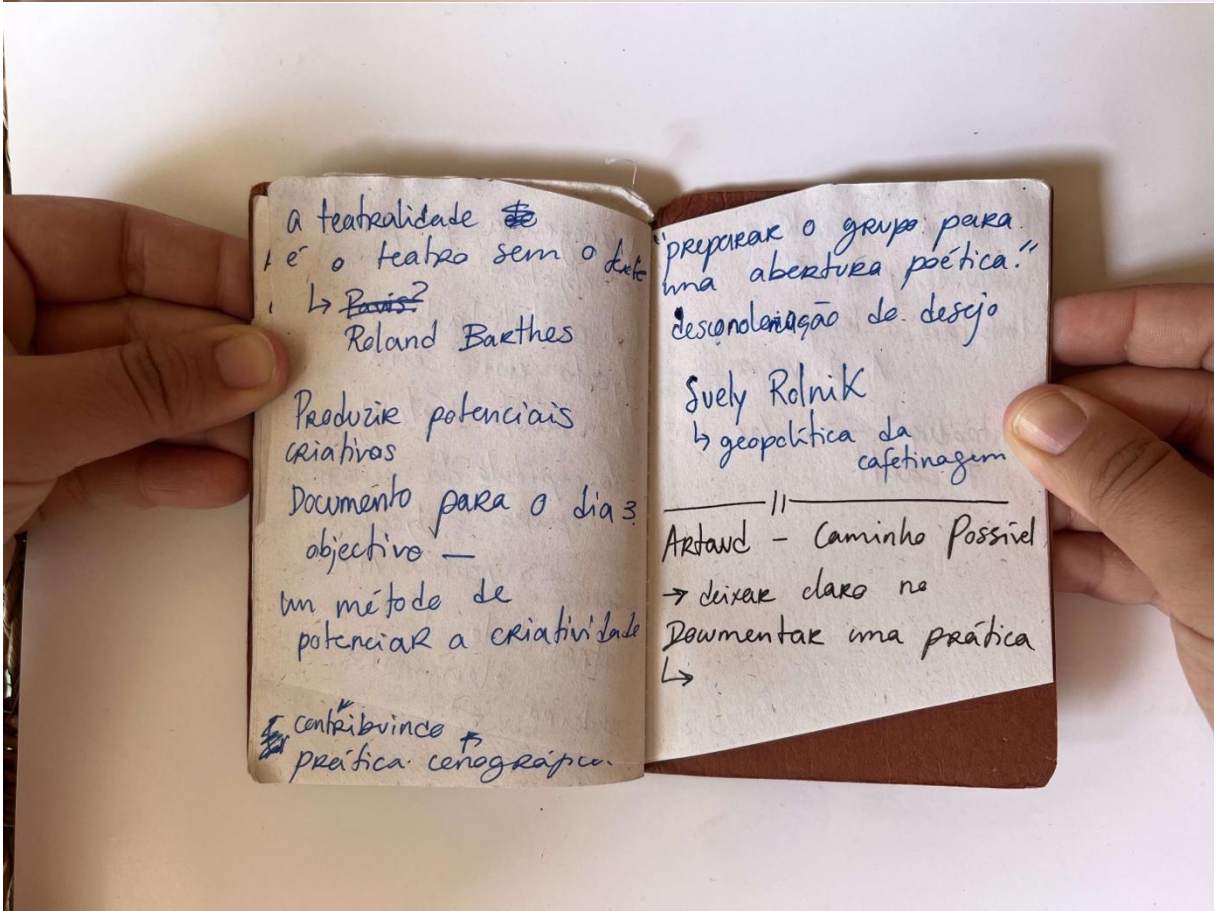 a teatralidade
é o teatro sem o texto
↳ Pavis?
Roland Barthes
Produzir potenciais
criativos
Documento para o dia 3
objectivo —
um método de
potenciar a criatividade
contribuindo
prática cenográfica.
"preparar o grupo para
uma abertura poética."
desconolonização do desejo
Suely Rolnik
↳ geopolítica da
cafetinagem
Artaud – Caminho Possível
→ deixar claro no
Documentar uma prática
↳